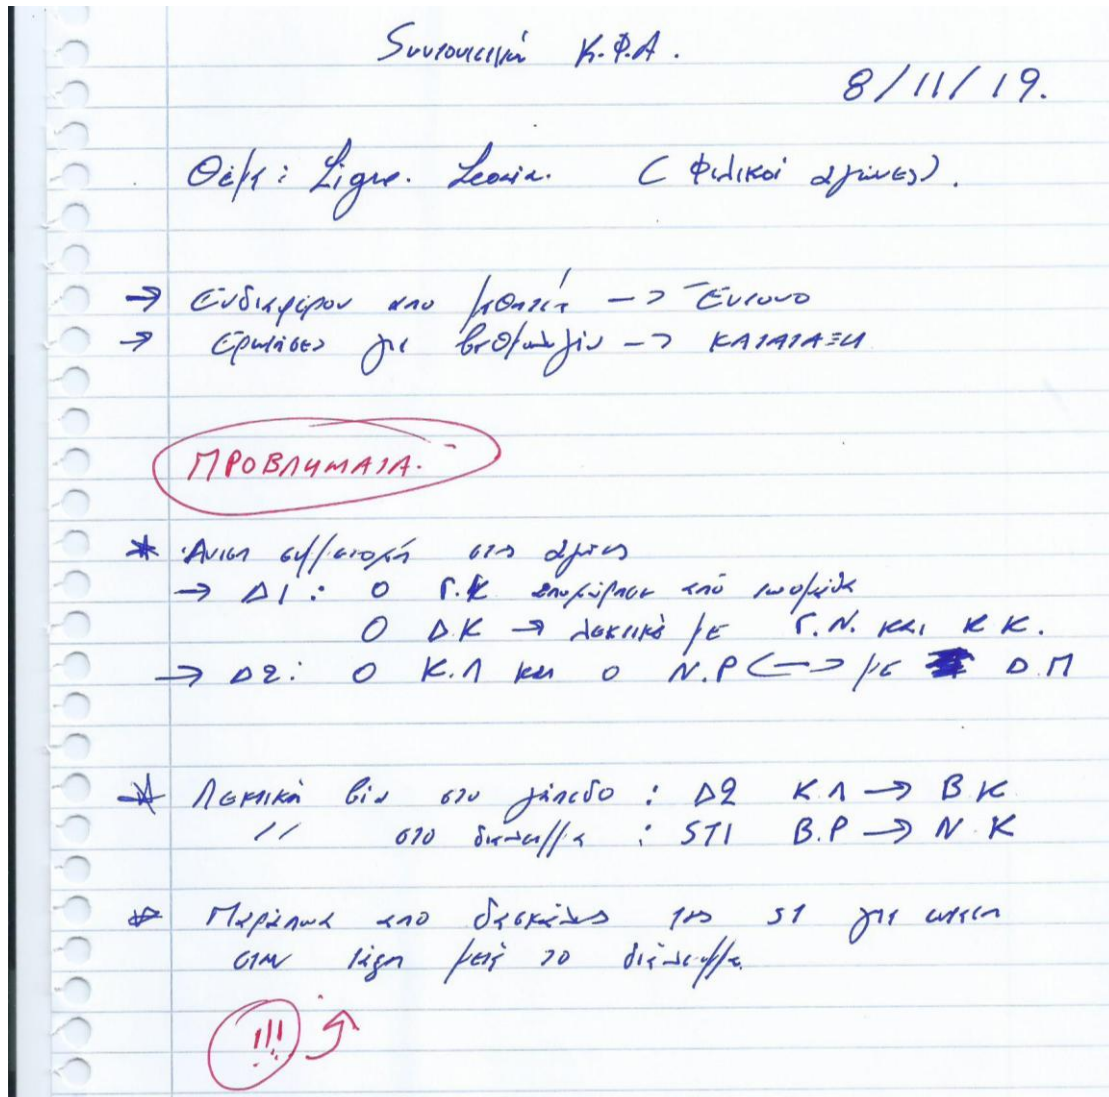 Συντονιστική Κ.Φ.Α.
8/11/19.
Θέμα: Ligue. (Φιλικοί αγώνες).
→ Ενδιαφέρον από μαθητές -> Έντονο
→ Ερωτήσεις για βαθμολογία -> ΚΑΤΑΤΑΞΗ
ΠΡΟΒΛΗΜΑΤΑ.
* Άνιση συμμετοχή στους αγώνες
→ Δ1: Ο Γ.Κ αποχώρησε από
Ο Δ.Κ → λεκτικά με Γ.Ν. και Κ.Κ.
→ Δ2: Ο Κ.Λ και ο Ν.Ρ <-> με Δ.Π
* Λεκτική βία στο γήπεδο: Δ2 Κ.Λ → Β.Κ
" στο διάλειμμα: ST1 Β.Ρ → Ν.Κ
* Παράπονα από δασκάλους της ST για
στην τάξη μετά το διάλειμμα.
!!!